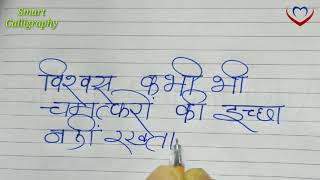 Smart
Calligraphy
विश्वस कभी भी
चमत्करों की इच्छा
नहीं रखता